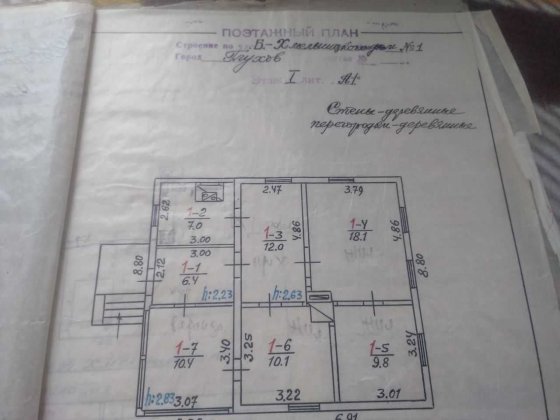 ПОЭТАЖНЫЙ ПЛАН
Строение по Б.-Хмельницкого дом №1
Город Глухов
Этаж I лит. А1
Стены-деревянные
перегородки-деревянные
2.47 3.79
2.62 1-2 7.0 3.00
1-3 12.0 4.86
1-4 18.1 4.86
8.80 2.12 3.00 1-1 6.4 h:2.23
h:2.63 8.80
1-7 10.4 3.40 3.25 1-6 10.1 1-5 9.8 3.24
h:2.83 3.07 3.22 3.01
6.91